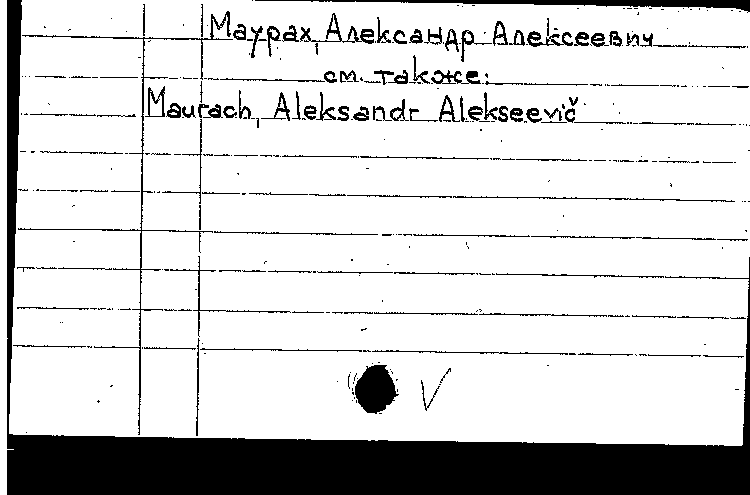 Маурах, Александр Алексеевич
см. также:
Maurach, Aleksandr Alekseevič